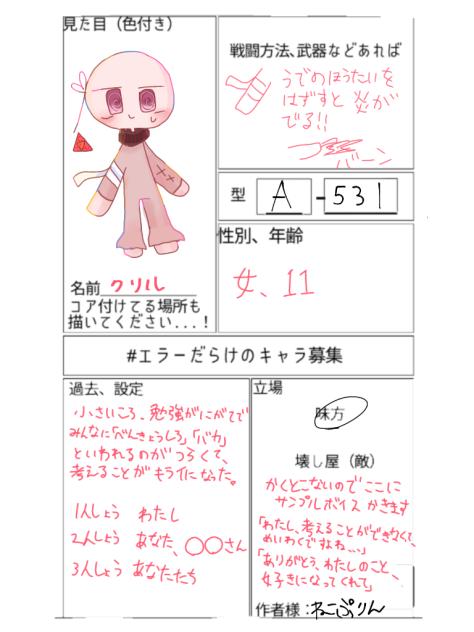 見た目（色付き）
名前 クリル
コア付けてる場所も
描いてください...！
戦闘方法、武器などあれば
うでのほうたいを
はずすと炎が
でる!!
バーン
型 A-531
性別、年齢
女、11
#エラーだらけのキャラ募集
過去、設定
小さいころ、勉強がにがてで
みんなに「べんきょうしろ」「バカ」
といわれるのがつらくて、
考えることがキライになった。
1人しょう わたし
2人しょう あなた、〇〇さん
3人しょう あなたたち
立場
味方
壊し屋（敵）
かくとこないのでここに
サンプルボイスかきます
「わたし、考えることができなくて、
めいわくですよね、、、」
「ありがとう、わたしのこと、
好きになってくれて」
作者様：ねこぷりん